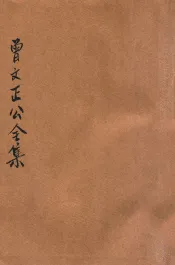 曾文正公全集